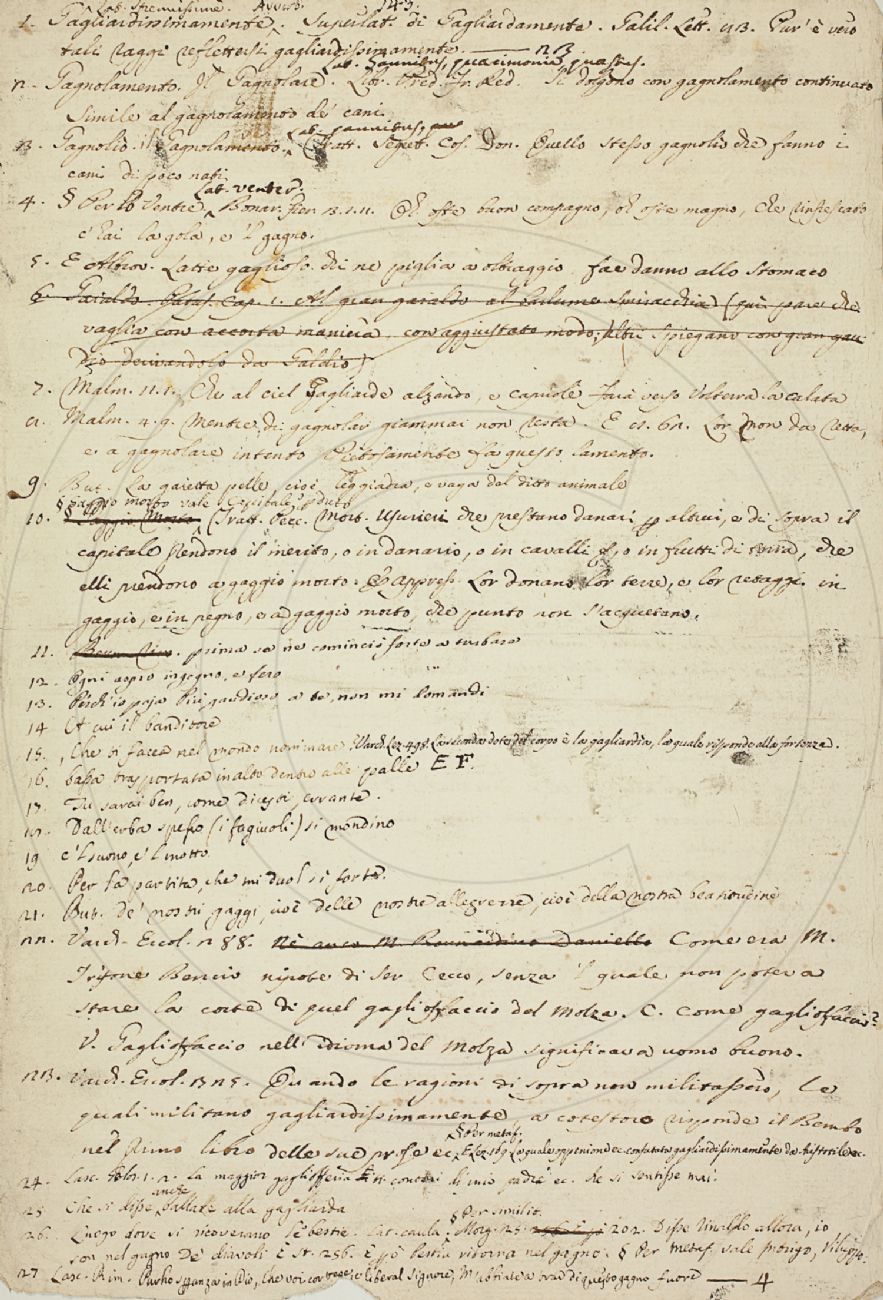 Lat. strenuissime. Avverb. 143.
1. Gagliardissimamente. Superlat. di Gagliardamente. Galil. Lett. Pur' è vero
tali raggi reflettersi gagliardissimamente.
Lat. gannitus,
2. Gagnolamento. Il Gagnolare. Lib. cred. Fr. Red. Si dolgono con gagnolamento continuato
simile al gagnolammto de' cani.
Lat. gannitus,
3. Gagnolio. il Gagnolamento. Tratt. Segret. Cos. Don. Quello stesso gagnolio che fanno i
cani di poco nati
Lat. venter.
4. § Per lo Ventre Bonar. Fier. Oh oste buon compagno, oh oste magno, che rinfrescato
c'hai la gola, e 'l gagno.
5. E Altrov. Latte gaglioso. chi ne piglia a oltraggio, fae danno allo stomaco
6. Cap. 1. Al gran garaldo al (qui pare che
vaglia con accorta maniera, con aggiustato modo; altri spiegano con gran gau
dio derivandolo da Galdio)
7. Malm. 11. 1. Che al ciel gagliarde alzando, e capriole Farà verso Volterra la calata
Malm. 4. 9. Mentre di gagnolar giammai non resta. E Lor non da retta,
e a gagnolare intento Pietosamente fa questo lamento.
9. But. La gaietta pelle cioè leggiadra, e vaga del ditto animale
§ Gaggio morto vale Capitale
10. Tratt. Pecc. Mort. Usurieri che prestano danari altrui, e di sopra il
capitale prendono il merito, o in danario, o in cavalli, o in frutti di terra, che
elli prendono a gaggio morto. E appress. Lor donano lor terre, e lor retaggi in
gaggio, e in pegno, e a gaggio morto, che punto non s'acquetano.
11. prima se ne cominciò forte a turbare
12. Ogni aspro ingegno, e fero
13. Perch' io paja Più gaudioso a te, non mi domandi
14 A cui il banditore
15. Che si facea nel mondo Varch. Lez. 498. La seconda dote del corpo è la gagliardia, la quale risponde alla fortezza.
16. bassa trasportata in alto dentro alle palle E F.
17. Tu sarai ben, come dicesti, errante.
Dall' erba spesso (i fagiuoli) si mondino
19 e 'l suono, e 'l motto
20. Per la partita, che mi duol sì forte.
21. But. de' nostri gaggi, cioè delle nostre allegrezze, cioè della nostra beatitudine
22. Varch. Ercol. 288. Nè anco M. Danielle Come era M.
Trifone Bencio nipote di Ser Cecco, senza 'l quale non poteva
stare la corte di quel gaglioffaccio del Molza. C. Come gaglioffaccio?
V. Gaglioffaccio nell' idioma del Molza significava uomo buono.
23. Varch. Ercol. 325. Quando le ragioni di sopra non militassero, le
quali militano gagliardissimamente, a cotestoro risponde il Bembo
§ Per metaf.
nel Primo libro delle sue prose ec. E Lez. La quale oppenione ec. confutata gagliardissimamente da Aristotile ec.
24. Lasc. Gelos. 1. 2. La maggior gagliofferia di mio padre ec. che si sentisse mai.
25 Che si disse anche ballare alla gagliarda
§ Per similit.
26. Luogo dove si ricoverano le bestie. Lat. caula. Morg. 25. 202. Disse Rinaldo allora, io
son nel gagno De' diavoli E St. 256. E più bestia ritorna nel gagno. § Per metaf. vale Intrigo, Viluppo.
27 Lasc. Rim. Pur ho speranza in Dio, che voi cortese, e liberal signore, M'abbiate a trar di questo gagno fuore 4